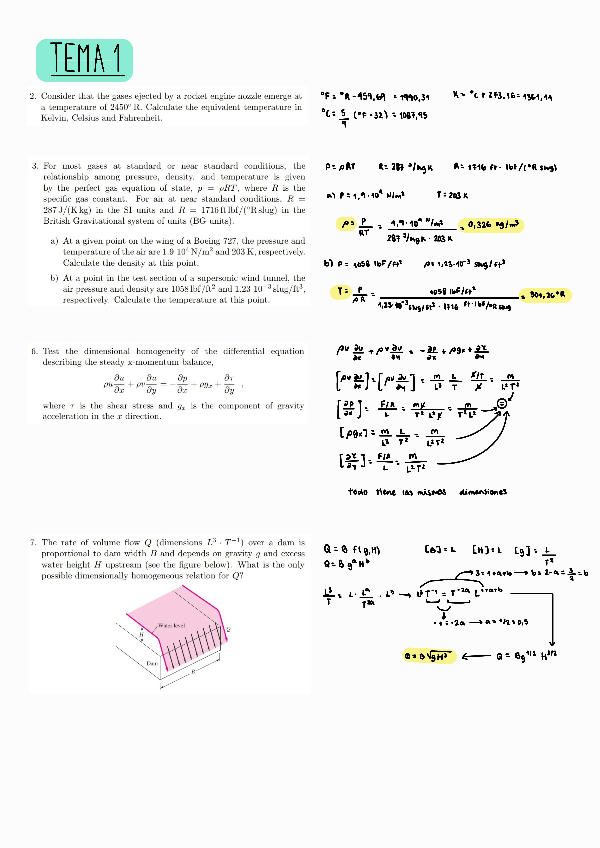 TEMA 1
2. Consider that the gases ejected by a rocket engine nozzle emerge at
a temperature of 2450° R. Calculate the equivalent temperature in
Kelvin, Celsius and Fahrenheit.
°F = °R - 459,69 = 1990,31
K = °C + 273,16 = 1361,11
°C = 5/9 (°F - 32) = 1087,95
3. For most gases at standard or near standard conditions, the
relationship among pressure, density, and temperature is given
by the perfect gas equation of state, p = ρRT, where R is the
specific gas constant. For air at near standard conditions, R =
287 J/(K kg) in the SI units and R = 1716 ft lbf/(°R slug) in the
British Gravitational system of units (BG units).
a) At a given point on the wing of a Boeing 727, the pressure and
temperature of the air are 1.9 10⁴ N/m² and 203 K, respectively.
Calculate the density at this point.
b) At a point in the test section of a supersonic wind tunnel, the
air pressure and density are 1058 lbf/ft² and 1.23 10⁻³ slug/ft³,
respectively. Calculate the temperature at this point.
p = ρRT R = 287 J/kg K R = 1716 ft · lbf/(°R slug)
a) P = 1,9 · 10⁴ N/m² T = 203 K
ρ = P/RT = 1,9 · 10⁴ N/m² / 287 J/kg K · 203 K = 0,326 kg/m³
b) P = 1058 lbf/ft² ρ = 1,23 · 10⁻³ slug/ft³
T = P/ρR = 1058 lbf/ft² / 1,23 · 10⁻³ slug/ft³ · 1716 ft · lbf/°R slug = 501,26 °R
6. Test the dimensional homogeneity of the differential equation
describing the steady x-momentum balance,
ρu ∂u/∂x + ρv ∂u/∂y = − ∂p/∂x + ρgₓ + ∂τ/∂y ,
where τ is the shear stress and gₓ is the component of gravity
acceleration in the x direction.
ρu ∂u/∂x + ρv ∂u/∂y = - ∂p/∂x + ρgx + ∂τ/∂y
[ρu ∂u/∂x] = [ρv ∂u/∂y] = M/L³ L/T L/T/L = M/L²T²
[∂p/∂x] = F/A/L = ML/T²L²L = M/T²L²
[ρgx] = M/L³ L/T² = M/L²T²
[∂τ/∂y] = F/A/L = M/L²T²
=
todo tiene las mismas dimensiones
7. The rate of volume flow Q (dimensions L³ · T⁻¹) over a dam is
proportional to dam width B and depends on gravity g and excess
water height H upstream (see the figure below). What is the only
possible dimensionally homogeneous relation for Q?
Water level
H
Q
Dam
B
Q = B f(g,H) [B] = L [H] = L [g] = L/T²
Q = B gᵃ Hᵇ
3 = 1 + a + b → b = 2 - a = 3/2 = b
L³/T = L · Lᵃ/T²ᵃ · Lᵇ → L³ T⁻¹ = T⁻²ᵃ L¹⁺ᵃ⁺ᵇ
-1 = -2a → a = 1/2 = 0,5
Q = B √gH³ ← Q = B g¹ᐟ² H³ᐟ²